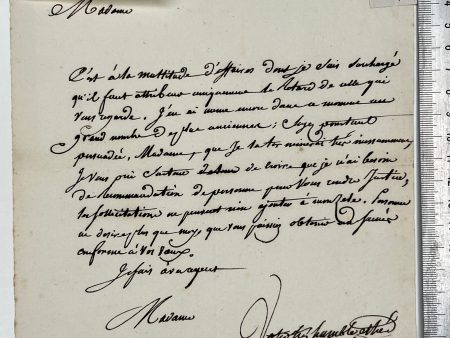 Madame
C'est à la multitude d'affaires dont je suis surchargé
qu'il faut attribuer uniquement le retard de celle qui
vous regarde. J'en ai même encore dans ce moment un
grand nombre de plus anciennes; soyez pourtant
persuadée, Madame, que je la terminerai très incessamment
Je vous prie surtout de croire que je n'ai besoin
de recommandation de personne pour vous rendre justice,
les sollicitations ne peuvent rien ajouter à mon zele. Personne
ne desire plus que moy, que vous puissiez obtenir
conforme à vos vœux.
Je suis avec respect
Madame
Votre très humble et très